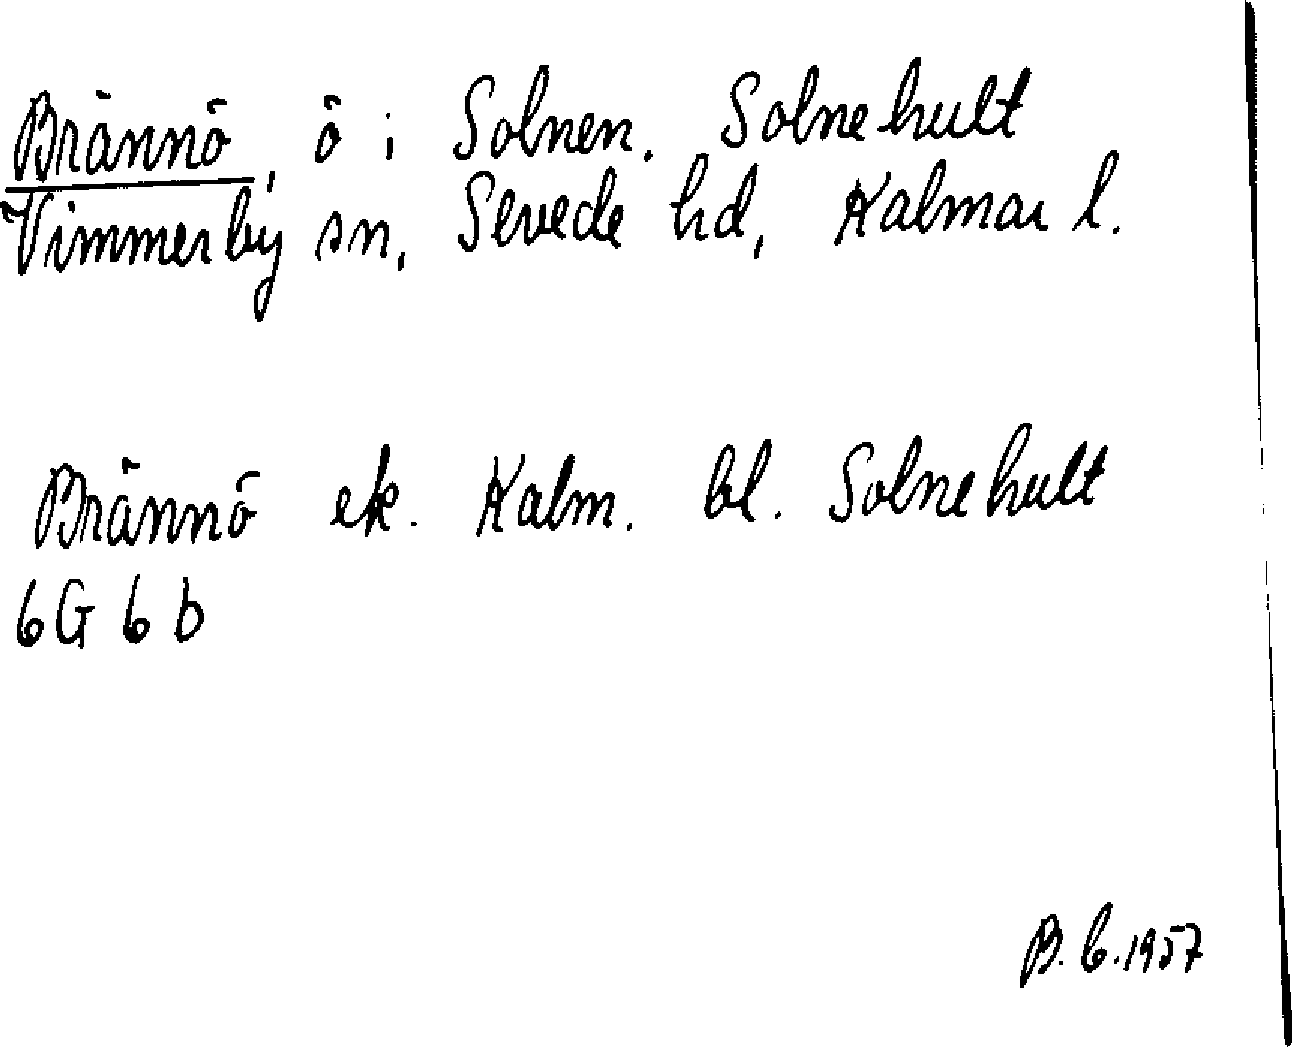 Brännö, ö i Solnen. Solnehult
Vimmerby sn, Sevede hd, Kalmar l.
Brännö ek. Kalm. bl. Solnehult
6G 6 b
B. C. 1957